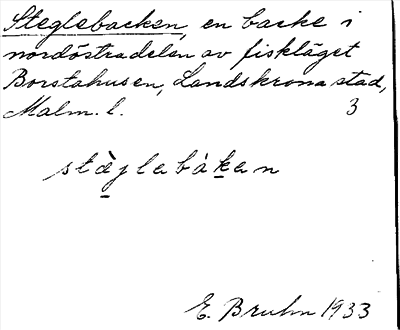 Steglebacken, en backe i
nordöstra delen av fiskläget
Borstahusen, Landskrona stad,
Malm. l. 3
stæ̀glebákan
E. Bruhn 1933